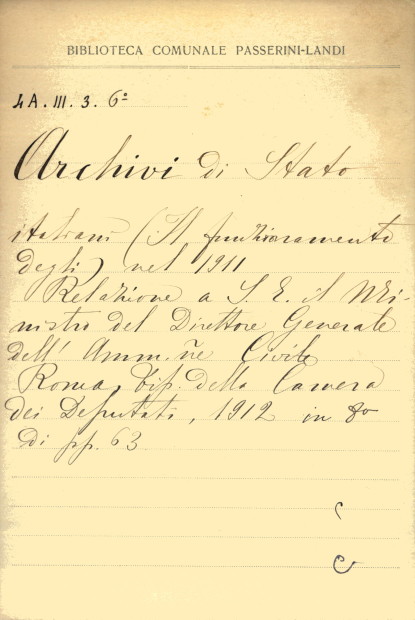 BIBLIOTECA COMUNALE PASSERINI-LANDI
4A. III. 3. 6º
Archivi di Stato
italiani (Il funzionamento
degli) nel 1911
Relazione a S. E. il Mi-
nistro del Direttore Generale
dell' Amm.ñe Civile
Roma, Tip. della Camera
dei Deputati, 1912 in 8º
di pp. 63